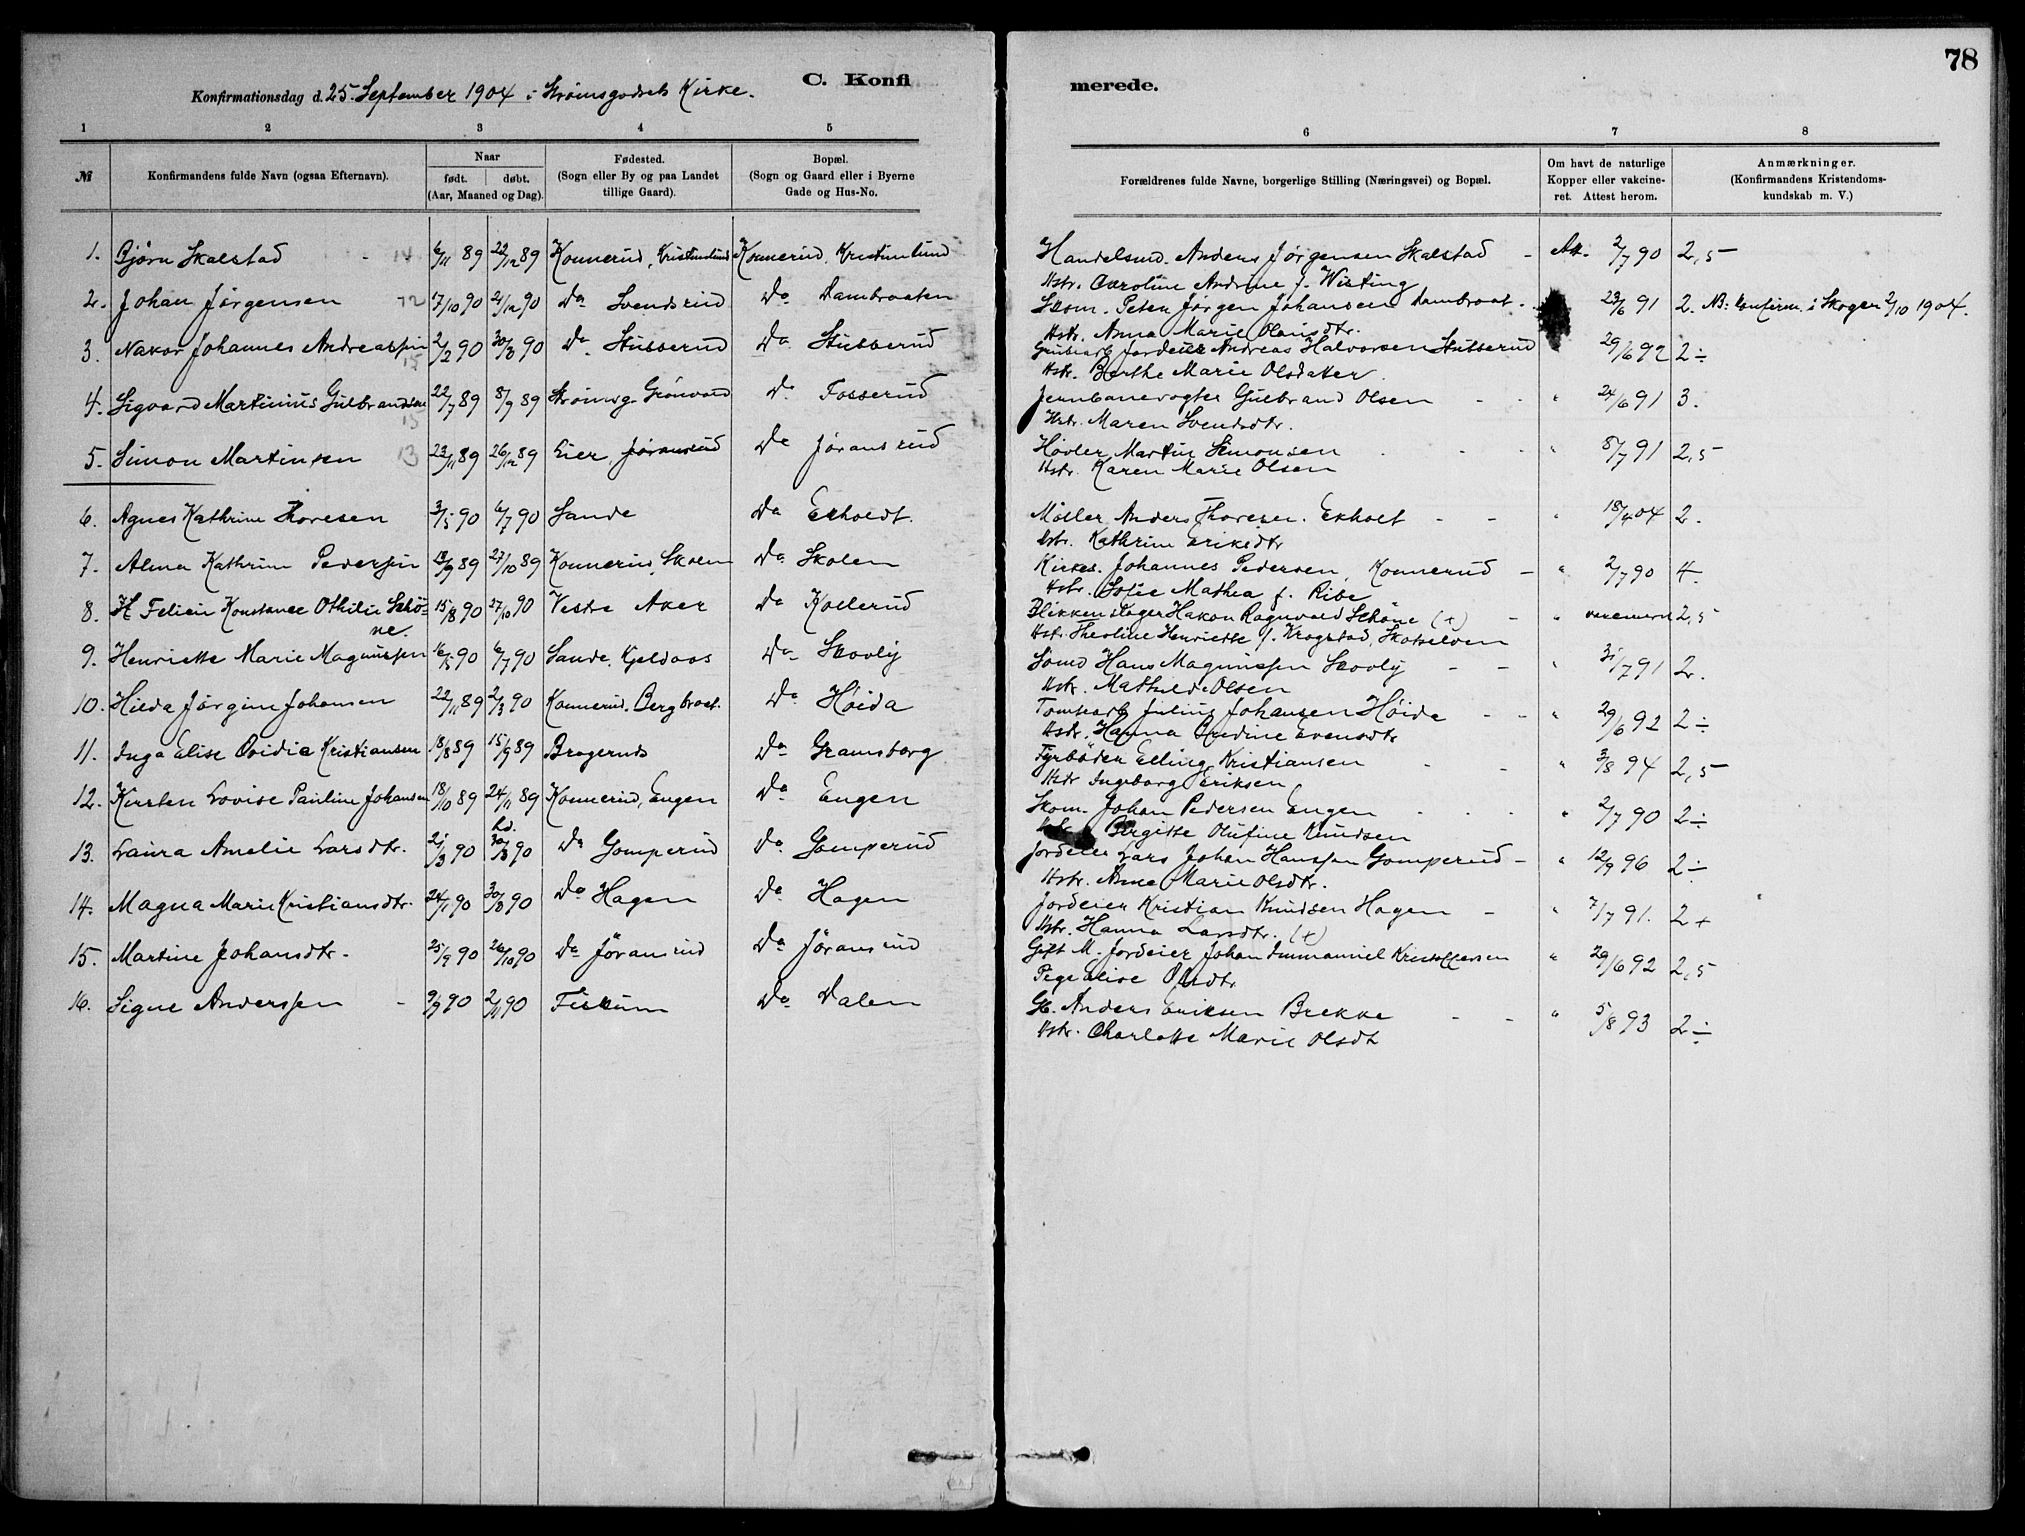 78
C. Konfi
merede.
Konfirmationsdag d. 25. September 1904 i Strømsgodsets Kirke.
1 2 3 4 5 6 7 8
№ Konfirmandens fulde Navn (ogsaa Efternavn).
Naar
født. døbt.
(Aar, Maaned og Dag).
Fødested.
(Sogn eller By og paa Landet
tillige Gaard).
Bopæl.
(Sogn og Gaard eller i Byerne
Gade og Hus-No.
Forældrenes fulde Navne, borgerlige Stilling (Næringsvei) og Bopæl.
Om havt de naturlige
Kopper eller vakcine-
ret. Attest herom.
Anmærkninger.
(Konfirmandens Kristendoms-
kundskab m. V.)
1. Bjørn Skalstad 14 6/11 89 22/12 89 Konnerud, Kristinelund Konnerud, Kristinelund Handelsmd. Anders Jørgensen Skalstad - Att. 2/7 90 2,5
Hstr. Caroline Andrine f. Wisting
2. Johan Jørgensen 12 17/10 90 21/12 90 Do Svendsrud Do Dambraaten Skom. Peter Jørgen Johansen Dambraat. 23/6 91 2. NB: konfirm. i Skoger 2/10 1904.
Hstr. Anna Marie Olausdtr.
3. Nakor Johannes Andreassen 15 2/2 90 30/3 90 Do Stubberud Do Stubberud Grubearb. Jordeier Andreas Halvorsen Stubberud 29/6 92 2÷
Hstr. Berthe Marie Olsdatter
4. Sigvard Martinius Gulbrandsen 15 22/7 89 8/9 89 Strømsg. Grønvold Do Fosserud Jernbanevogter Gulbrand Olsen - - " 24/6 91 3.
Hstr. Maren Svendsdtr.
5. Simon Martinsen 13 23/11 89 26/12 89 Eier, Jøransrud Do Jøransrud Høvler Martin Simonsen - - " 8/7 91 2,5
Hstr. Karen Marie Olsen
6. Agnes Kathrine Thoresen 3/5 90 6/7 90 Sande Do Ekholdt. Møller Anders Thoresen. Ekholt - - " 18/4 04 2.
Hstr. Kathrine Eriksdtr
7. Alma Kathrine Pedersen 13/9 89 27/10 89 Konnerud, Skolen Do Skolen Kirkes. Johannes Pedersen, Konnerud - " 2/7 90 4.
Hstr. Sofie Mathea f. Ribe
8. H. Felicia Konstance Othilie Schö- 15/8 90 27/10 90 Vestre Aker Do Kollerud Blikkenslager Hakon Ragnvald Schöne (+) - " vakcineret 2,5
ne. Hstr. Theoline Henriette f. Krogstad, Skotselven
9. Henriette Marie Magnussen 16/5 90 6/7 90 Sande, Gjeldaas Do Skovly Sømd Hans Magnussen Skovly - - " 31/7 91 2.
Hstr. Mathilde Olsen
10. Hilda Jørgine Johansen 22/11 89 2/3 90 Konnerud. Bergbraat. Do Høida Tomtearb. Julius Johansen Høida - - " 29/6 92 2÷
Hstr. Hanna Oredine Evensdtr
11. Inga Elise Ovidia Kristiansen 18/8 89 15/9 89 Bragernes Do Gramsborg Fyrbøder Elling Kristiansen - - " 3/8 94 2,5
Hstr Ingeborg Eriksen
12. Kirsten Lovise Pauline Johansen 18/10 89 24/11 89 Konnerud, Engen Do Engen Skom. Johan Pedersen Engen - - - " 2/7 90 2÷
Birgitte Olufine Knudsen
13. Laura Amelie Larsdtr. 21/3 90 hd. 30/3 90 Do Gomperud Do Gomperud Jordeier Lars Johan Hanssen Gomperud - " 12/9 96 2÷
Hstr. Anne Marie Olsdtr.
14. Magna Marie Kristiansdtr. 24/1 90 30/3 90 Do Hagen Do Hagen Jordeier Kristian Knudsen Hagen - " 7/7 91. 2+
Hstr. Hanna Larsdtr. (+)
15. Martine Johansdtr. 25/9 90 26/10 90 Do Jøransrud Do Jøransrud Gift M. Jordeier Johan Immanuel Kristoffersen " 29/6 92 2,5
Pige Elise Olsdtr
16. Signe Anderssen - 9/9 90 2/11 90 Fiskum Do Dalen Gb. Anders Eriksen Brekke - - " 5/8 93 2÷
Hstr. Charlotte Marie Olsdt